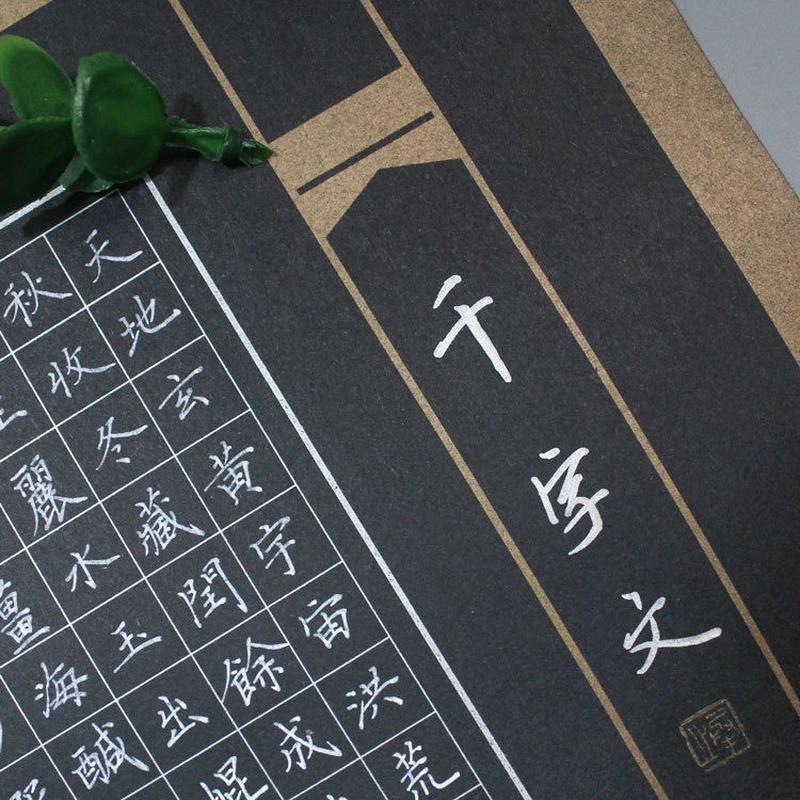 千字文
天地玄黄宇宙洪荒
秋收冬藏閏餘成
麗水玉出崐
薑海鹹